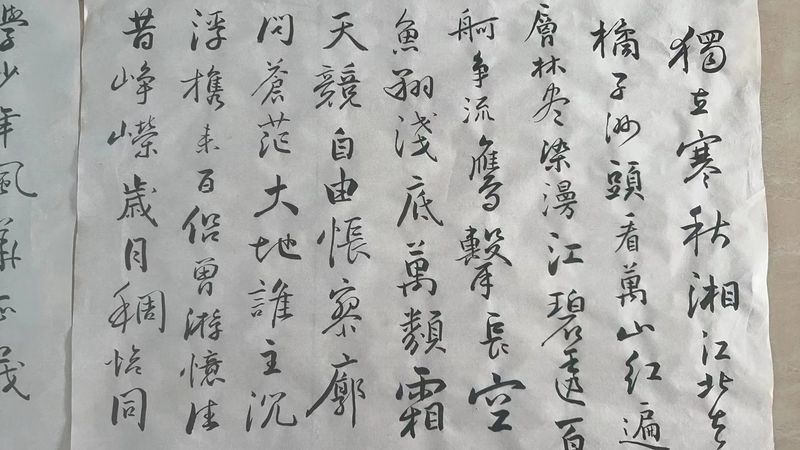 獨立寒秋湘江北去
橘子洲頭看萬山红遍
層林尽染漫江碧透百
舸争流鷹擊長空
魚翔淺底萬類霜
天競自由悵寥廓
问蒼茫大地誰主沉
浮携来百侣曾游憶往
昔崢嶸歲月稠恰同
學少年風華正茂